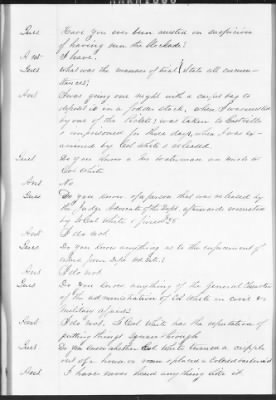 Ques Have you ever been arrested on suspicion
of having run the blockade?
Ans I have.
Ques What was the manner of trial & state all circum-
stances?
Ans I was going one night with a carpet bag to
deposit it in a fodder stack, when I was arrested
by one of the Pickets & was taken to Eastville
& imprisoned for three days when I was ex-
amined by Col White & released.
Ques Do you know a Mr Waterman an uncle to
Col White
Ans No
Ques Do you know of a person that was released by
the Judge Advocate of the Dept. afterwards rearrested
by Lt Col White & fined $25
Ans I do not
Ques Do you know anything as to the enforcement of
order from Dept
Ans I do not
Ques Do you know anything of the General Character
of the administration of Col White in civil &
military affairs?
Ans I do not, & Col White has the reputation of
putting things square through
Ques Do you know whether Col White turned a cripple
out of a house or room & placed a Colored
Ans I have never heard anything like it.